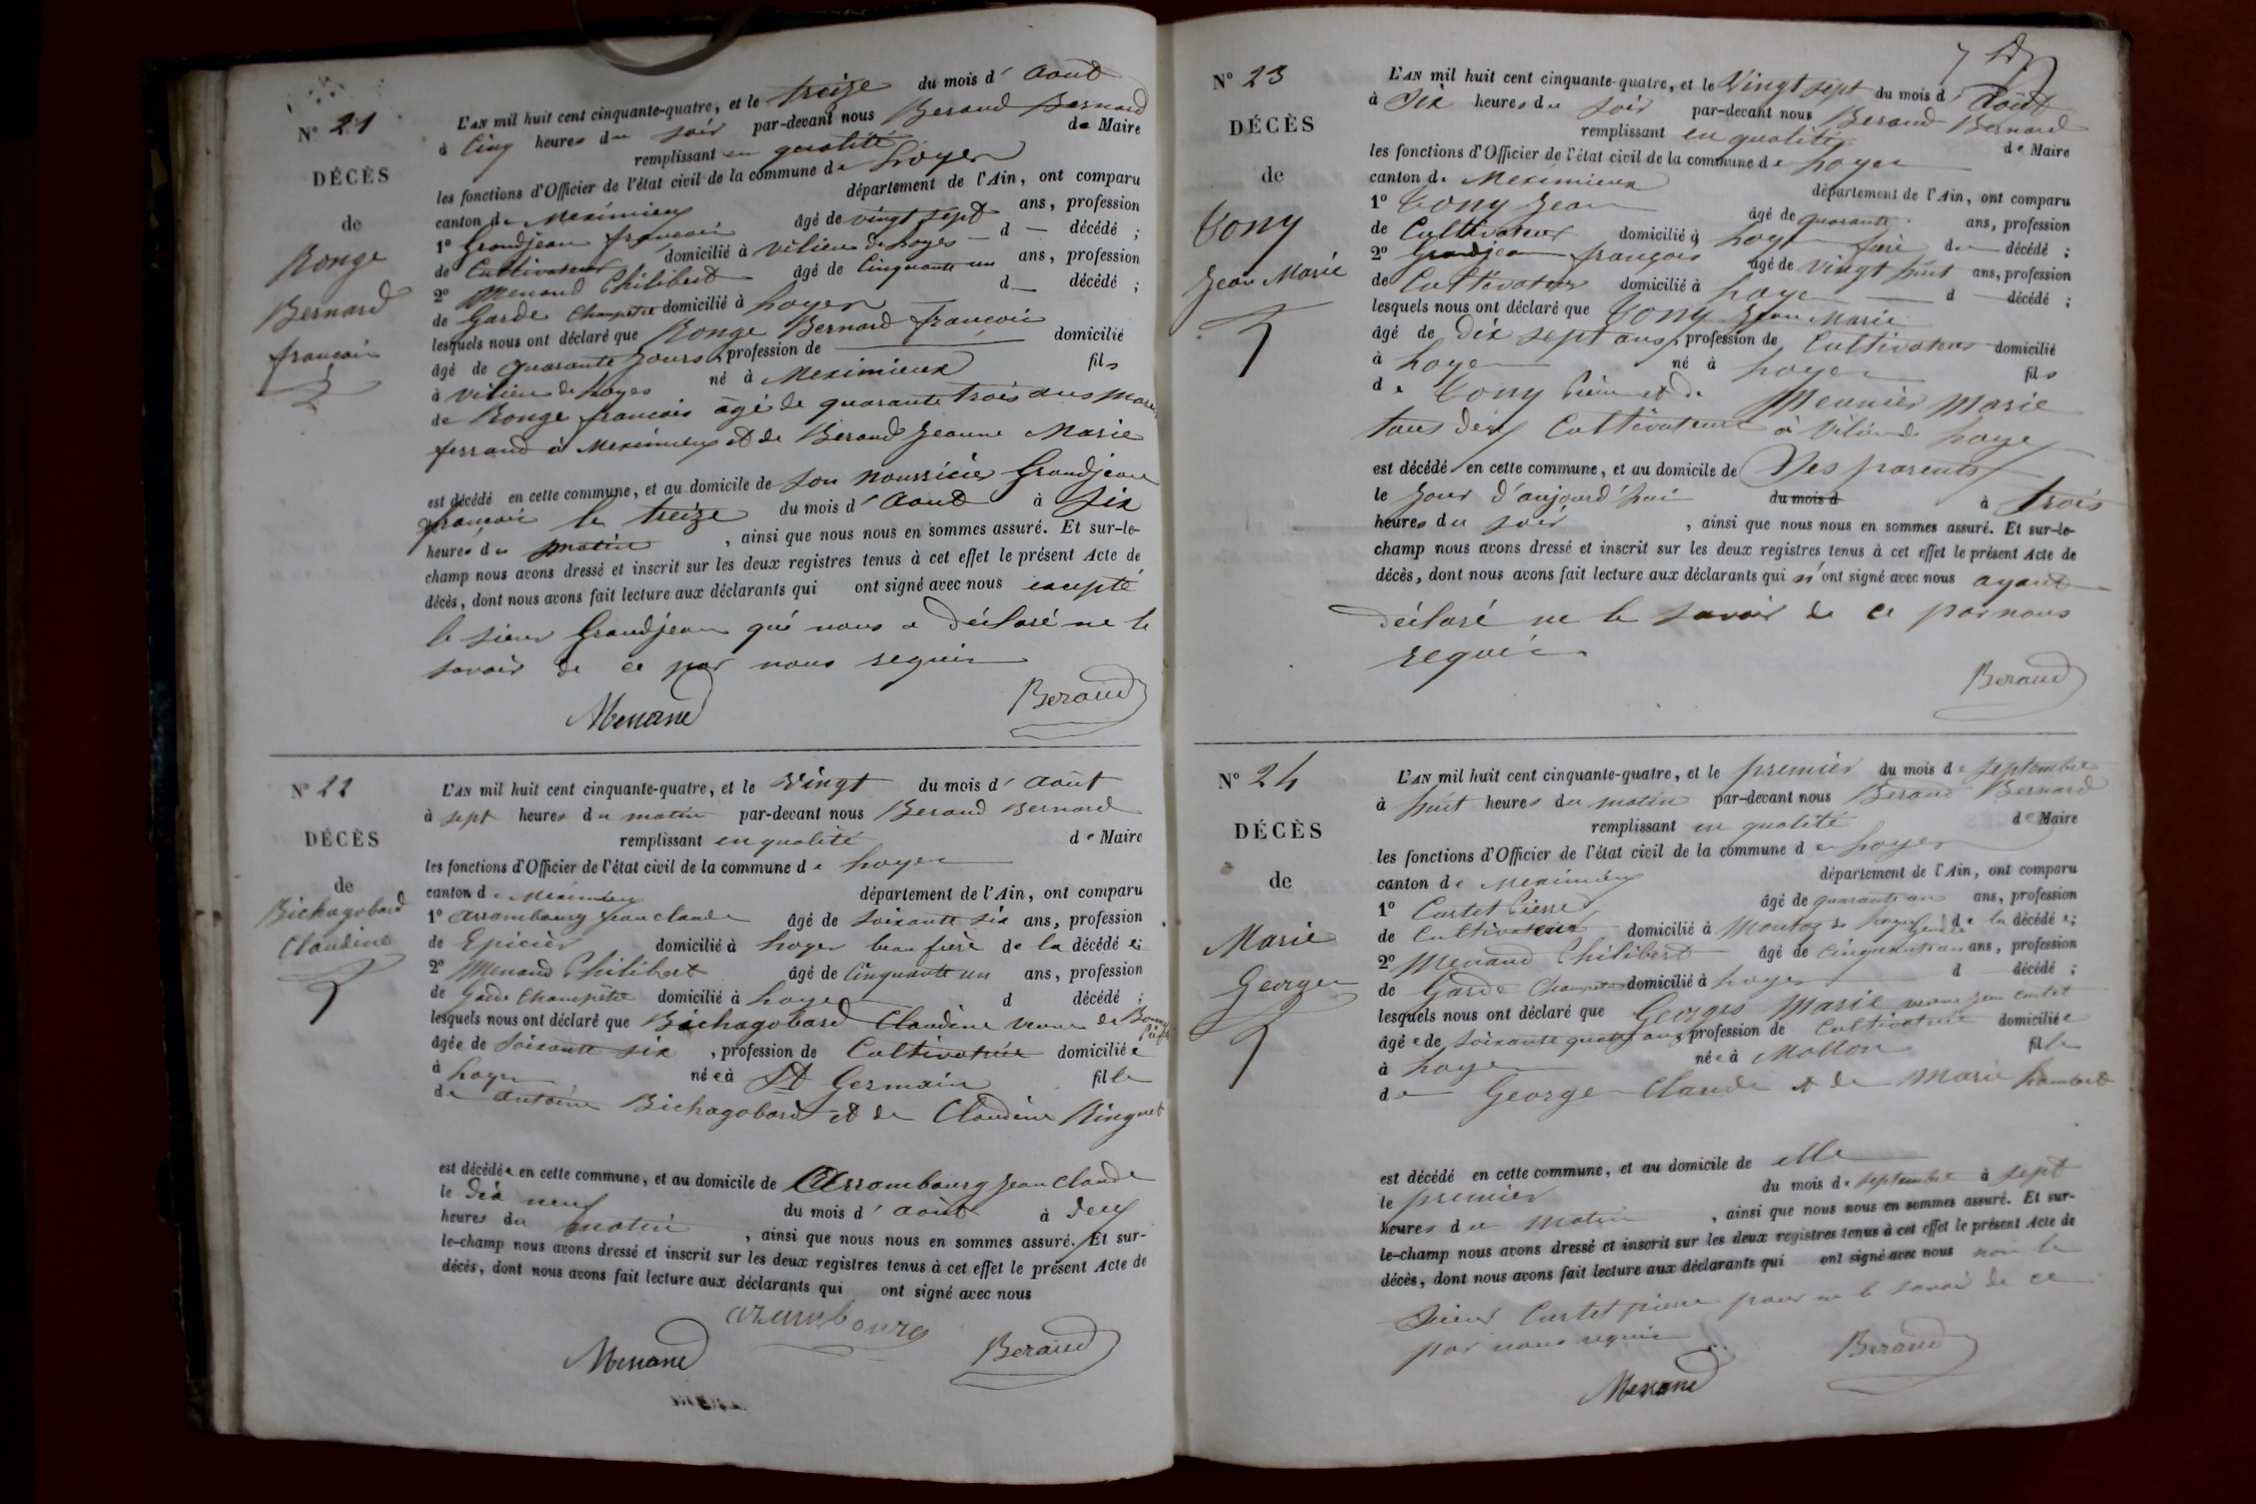 N° 21
DÉCÈS
de
Ronge
Bernard
françois
L'AN mil huit cent cinquante-quatre, et le treize du mois d' Aout
à Cinq heures du soir par-devant nous Beraud Bernard
remplissant en qualité de Maire
les fonctions d'Officier de l'état civil de la commune de Loyes
canton de Meximieux département de l'Ain, ont comparu
1° Grandjean françois âgé de vingt sept ans, profession
de Cultivateur domicilié à vilieu de Loyes — d — décédé ;
2° Menand Philibert âgé de Cinquante un ans, profession
de Garde Champetre domicilié à Loyes d décédé ;
lesquels nous ont déclaré que Ronge Bernard françois
âgé de quarante jours, profession de domicilié
à vilieu de Loyes né à Meximieux fils
de Ronge francois âgé de quarante trois ans
ferrand à Meximieux et de Beraud Jeanne Marie
est décédé en cette commune, et au domicile de son nourricier Grandjean
françois le treize du mois d' Aout à Six
heures du matin, ainsi que nous nous en sommes assuré. Et sur-le-
champ nous avons dressé et inscrit sur les deux registres tenus à cet effet le présent Acte de
décès, dont nous avons fait lecture aux déclarants qui ont signé avec nous excepté
le sieur Grandjean qui nous a déclaré ne le
savoir de ce par nous requis
Menand Beraud
N° 22
DÉCÈS
de
Bichagobard
Claudine
L'AN mil huit cent cinquante-quatre, et le Vingt du mois d' Août
à sept heures du matin par-devant nous Beraud Bernard
remplissant en qualité de Maire
les fonctions d'Officier de l'état civil de la commune de Loyes
canton de Meximieux département de l'Ain, ont comparu
1° Arrambourg Jean Claude âgé de Soixante six ans, profession
de Epicier domicilié à Loyes beau frère de la décédée;
2° Menand Philibert âgé de Cinquante un ans, profession
de Garde Champêtre domicilié à Loyes d décédé ;
lesquels nous ont déclaré que Bichagobard Claudine veuve de
âgée de Soixante six, profession de Cultivatrice domiciliée
à Loyes née à St Germain fille
de Antoine Bichagobard et de Claudine Ringuet
est décédée en cette commune, et au domicile de Arrambourg Jean Claude
le dix neuf du mois d' Août à deux
heures du matin, ainsi que nous nous en sommes assuré. Et sur-
le-champ nous avons dressé et inscrit sur les deux registres tenus à cet effet le présent Acte de
décès, dont nous avons fait lecture aux déclarants qui ont signé avec nous
arambourg
Menand Beraud
N° 23
DÉCÈS
de
Tony
Jean Marie
L'AN mil huit cent cinquante-quatre, et le Vingt sept du mois d' Août
à Six heures du soir par-devant nous Beraud Bernard
remplissant en qualité de Maire
les fonctions d'Officier de l'état civil de la commune de Loyes
canton de Meximieux département de l'Ain, ont comparu
1° Tony Jean âgé de quarante ans, profession
de Cultivateur domicilié à Loyes frère du décédé ;
2° Grandjean françois âgé de vingt huit ans, profession
de Cultivateur domicilié à Loyes d décédé ;
lesquels nous ont déclaré que Tony Jean Marie
âgé de dix sept ans, profession de Cultivateur domicilié
à Loyes né à Loyes fils
de Tony Pierre et de Meunier Marie
tous deux Cultivateurs à Vilieu de Loyes
est décédé en cette commune, et au domicile de Ses parents
le Jour d'aujourd'hui du mois d à trois
heures du soir, ainsi que nous nous en sommes assuré. Et sur-le-
champ nous avons dressé et inscrit sur les deux registres tenus à cet effet le présent Acte de
décès, dont nous avons fait lecture aux déclarants qui n'ont signé avec nous ayant
déclaré ne le savoir de ce par nous
requis
Beraud
N° 24
DÉCÈS
de
Marie
Georges
L'AN mil huit cent cinquante-quatre, et le premier du mois de septembre
à huit heures du matin par-devant nous Beraud Bernard
remplissant en qualité de Maire
les fonctions d'Officier de l'état civil de la commune de Loyes
canton de Meximieux département de l'Ain, ont comparu
1° Curtet Pierre âgé de quarante un ans, profession
de Cultivateur domicilié à Montoz de Loyes gendre de la décédée;
2° Menand Philibert âgé de cinquante un ans, profession
de Garde Champetre domicilié à Loyes d décédé ;
lesquels nous ont déclaré que Georges Marie veuve Jean Curtet
âgée de Soixante quatre ans, profession de Cultivatrice domiciliée
à Loyes née à Mollon fille
de Georges Claude et de Marie Humbert
est décédé en cette commune, et au domicile de elle
le premier du mois de septembre à sept
heures du matin, ainsi que nous nous en sommes assuré. Et sur-
le-champ nous avons dressé et inscrit sur les deux registres tenus à cet effet le présent Acte de
décès, dont nous avons fait lecture aux déclarants qui ont signé avec nous non le
Sieur Curtet pierre pour ne le savoir de ce
par nous requis
Menand Beraud